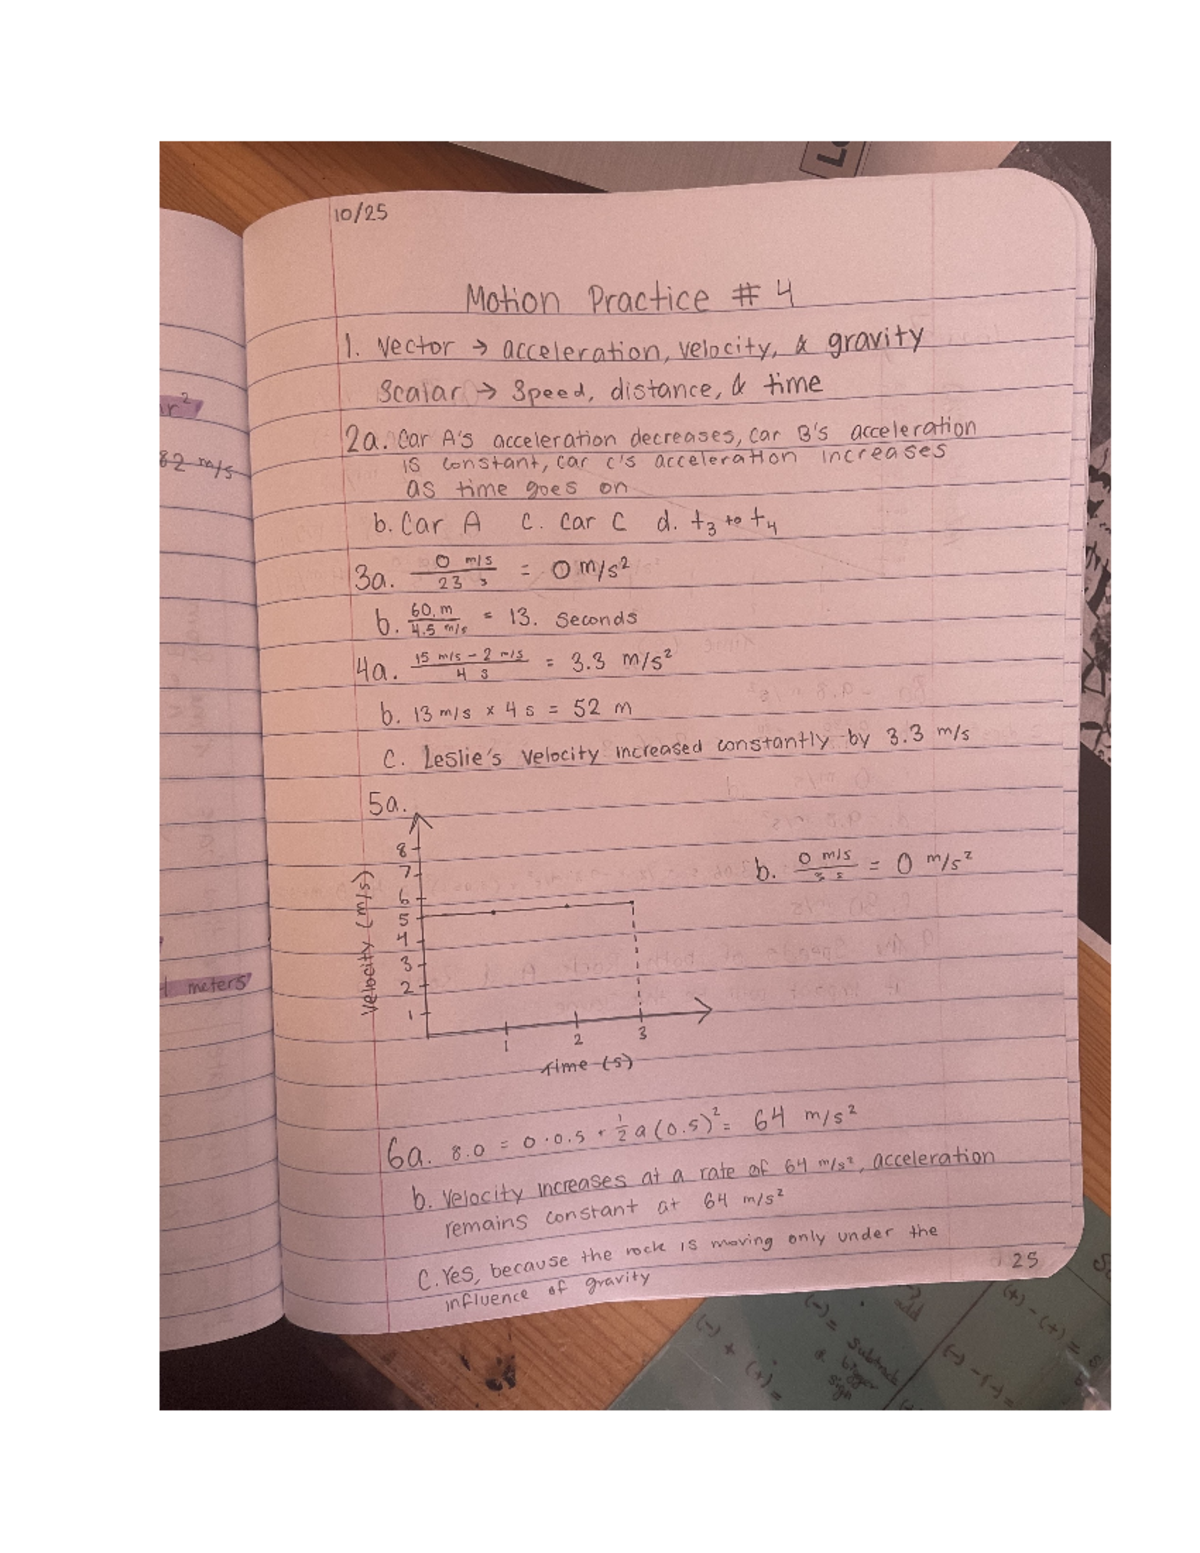 10/25
Motion Practice # 4
1. Vector → acceleration, velocity, & gravity
Scalar → Speed, distance, & time
2a. Car A's acceleration decreases, car B's acceleration
is constant, car c's acceleration increases
as time goes on
b. Car A c. Car C d. t3 to t4
3a. 0 m/s / 23 s = 0 m/s²
b. 60. m / 4.5 m/s = 13. Seconds
4a. 15 m/s - 2 m/s / 4 s = 3.3 m/s²
b. 13 m/s x 4 s = 52 m
C. Leslie's velocity increased constantly by 3.3 m/s
5a.
8
7
6
5
4
3
2
1
Velocity (m/s)
b. 0 m/s / 3 s = 0 m/s²
1 2 3
Time (s)
6a. 8.0 = 0·0.5 + 1/2 a (0.5)² = 64 m/s²
b. Velocity increases at a rate of 64 m/s², acceleration
remains constant at 64 m/s²
C. Yes, because the rock is moving only under the
influence of gravity
25
r²
82 m/s
meters
L
(-) + (+) =
(-) = subtract
& bigger
sign
add
(+) - (+) =
(-) - (-) =